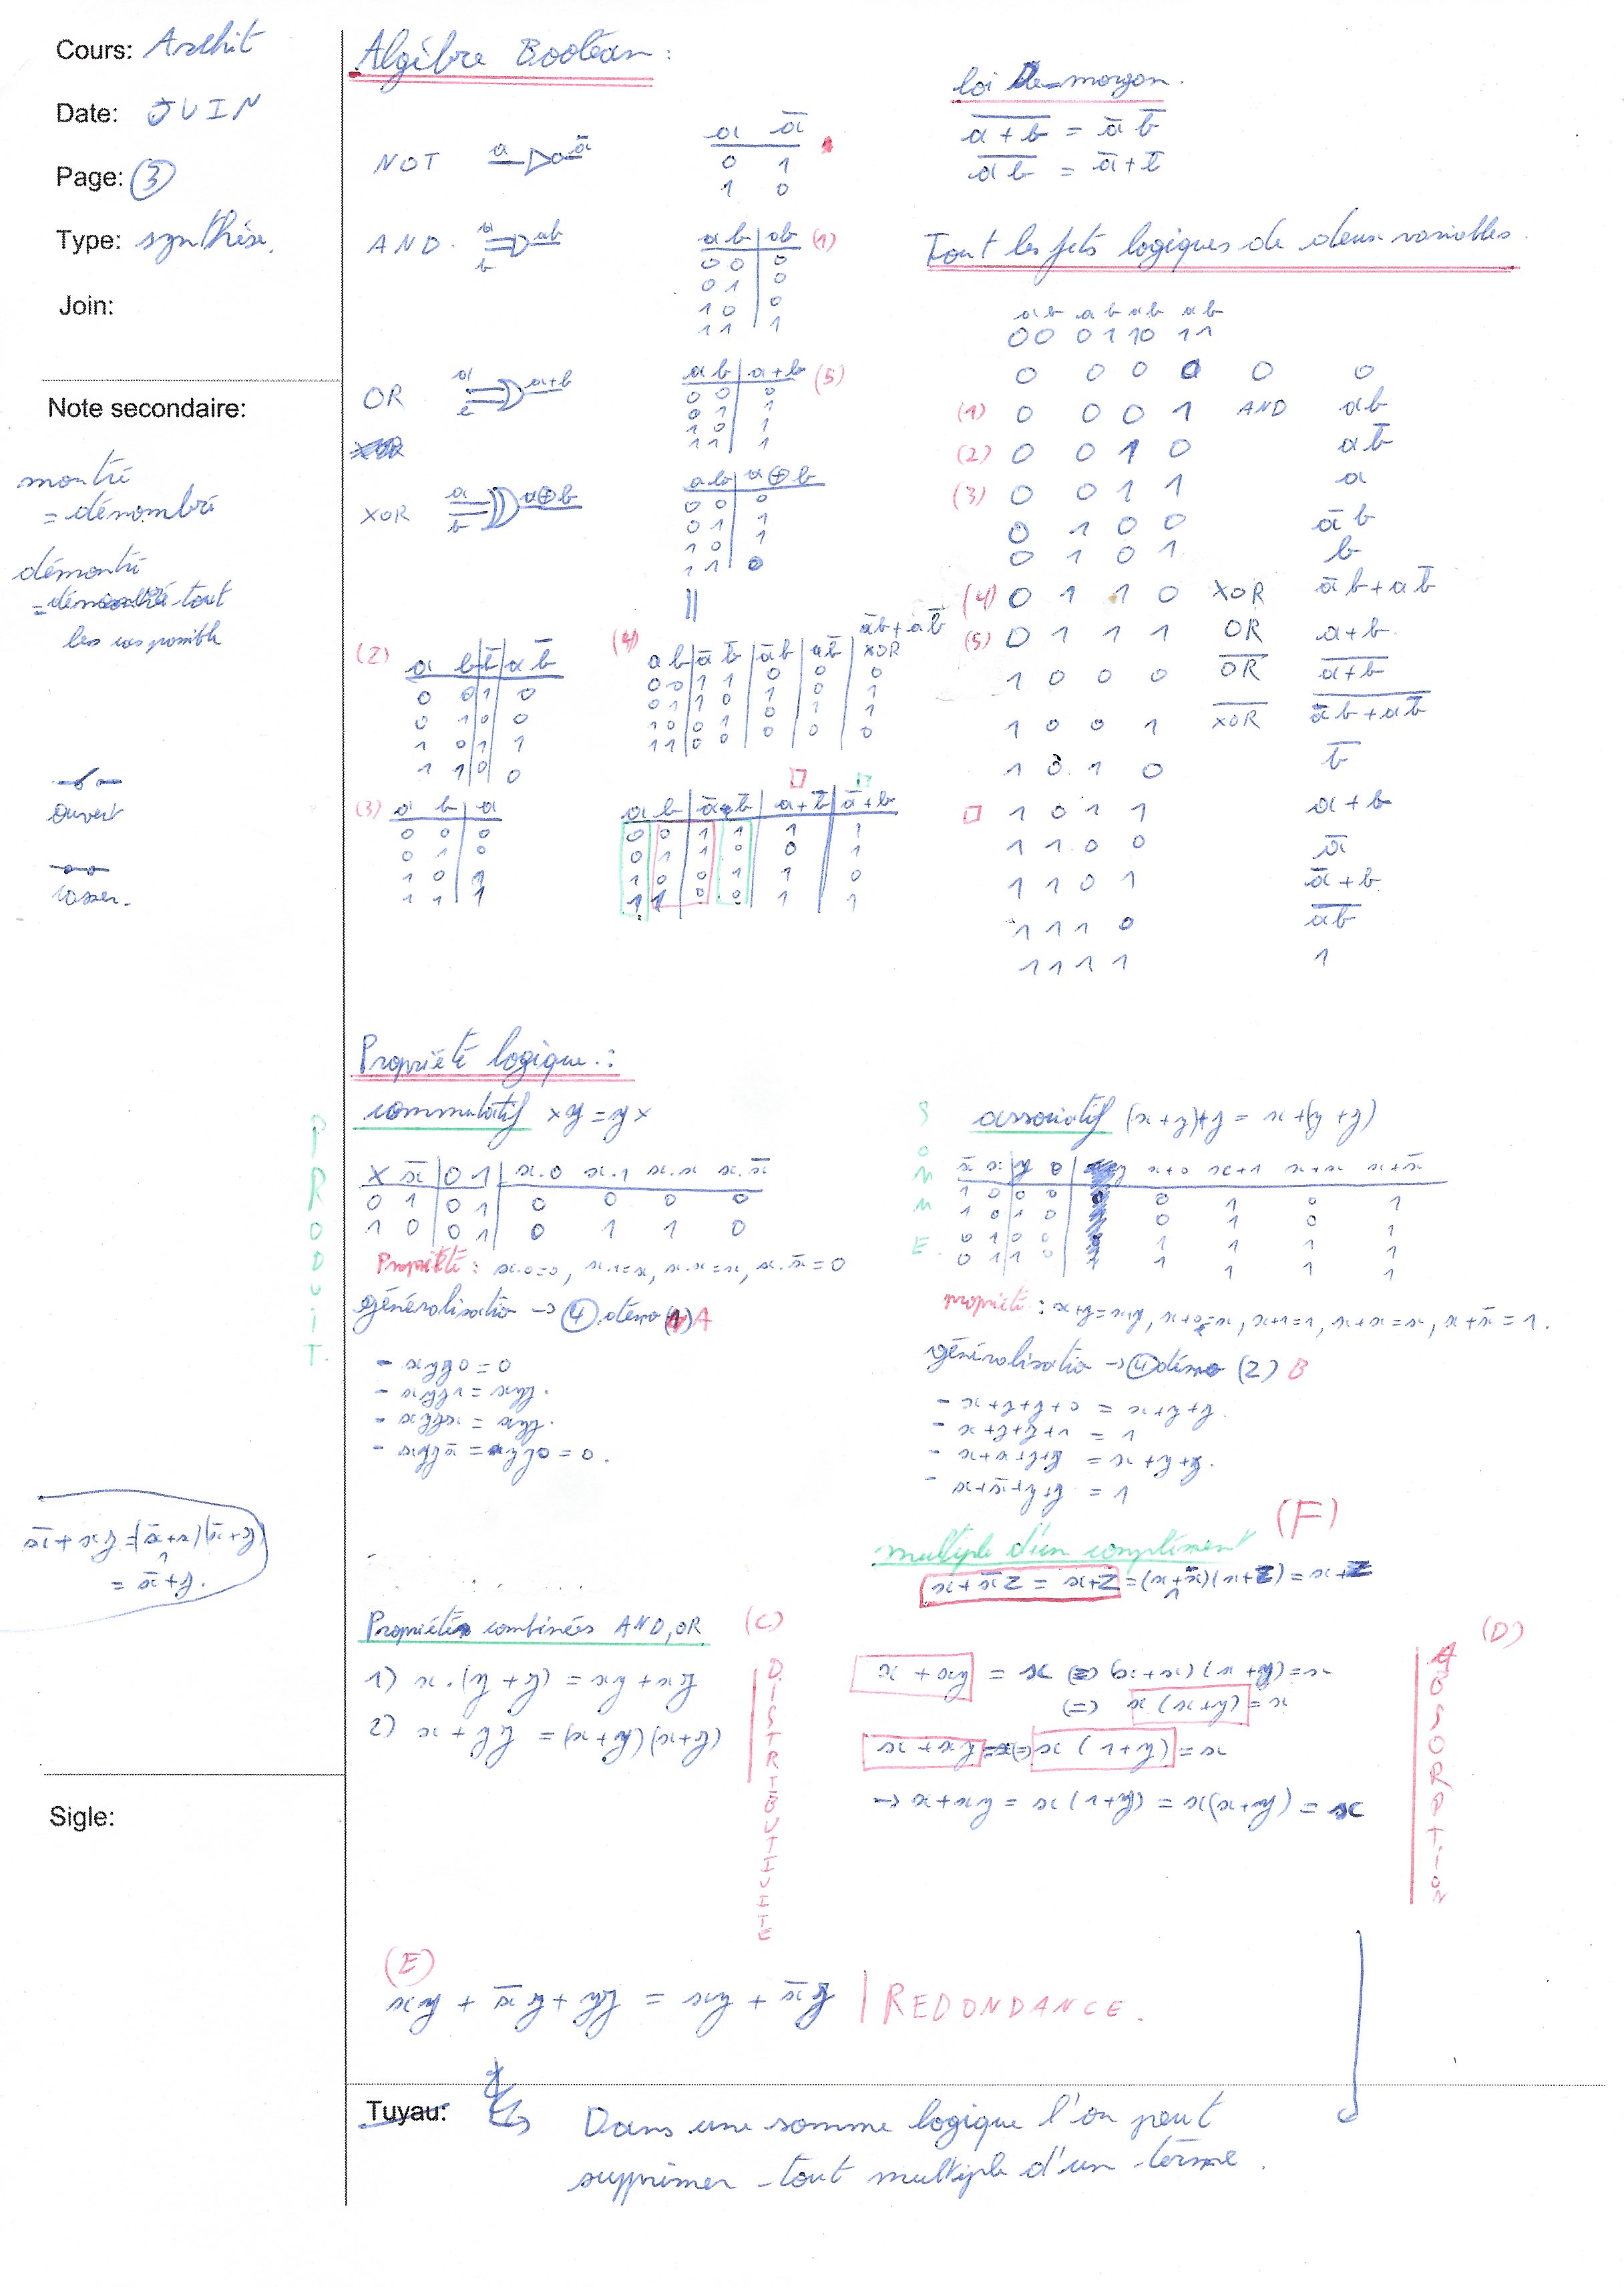 Cours: Archit
Date: JUIN
Page: 3
Type: synthèse.
Join:
Note secondaire:
montré
= dénombré
démontré
= tout
les cas possible
ouvert
Sigle:
x̄ + xy = (x̄+x)(x̄+y)
1
= x̄+y.
Algèbre Booléan :
NOT a ā
a ā
0 1
1 0
AND. a b ab
a b ab (1)
0 0 0
0 1 0
1 0 0
1 1 1
OR a+b
a b a+b (5)
0 0 0
0 1 1
1 0 1
1 1 1
XOR a b a⊕b
a b a⊕b
0 0 0
0 1 1
1 0 1
1 1 0
||
(2) a b b̄ a b̄
0 0 1 0
0 1 0 0
1 0 1 1
1 1 0 0
(4) a b ā b̄ āb ab̄ āb+ab̄ XOR
0 0 1 1 0 0 0
0 1 1 0 1 0 1
1 0 0 1 0 1 1
1 1 0 0 0 0 0
(3) a b a
0 0 0
0 1 0
1 0 1
1 1 1
a b ā b̄ a+b̄ ā+b
0 0 1 1 1 1
0 1 1 0 0 1
1 0 0 1 1 0
1 1 0 0 1 1
loi De morgan.
\overline{a+b} = ā b̄
\overline{ab} = ā+b̄
Tout les fcts logiques de deux variables.
a b a b a b a b
00 01 10 11
0 0 0 0 0 0
(1) 0 0 0 1 AND ab
(2) 0 0 1 0 ab̄
(3) 0 0 1 1 a
0 1 0 0 āb
0 1 0 1 b
(4) 0 1 1 0 XOR āb+ab̄
(5) 0 1 1 1 OR a+b
1 0 0 0 \overline{OR} \overline{a+b}
1 0 0 1 \overline{XOR} \overline{āb+ab̄}
1 0 1 0 b̄
1 0 1 1 a+b
1 1 0 0 ā
1 1 0 1 ā+b
1 1 1 0 \overline{ab}
1 1 1 1 1
Propriété logique.:
PRODUIT.
commutatif xy = yx
x x̄ 0 1 x.0 x.1 x.x x.x̄
0 1 0 1 0 0 0 0
1 0 0 1 0 1 1 0
Propriété : x.0=0, x.1=x, x.x=x, x.x̄=0
généralisatio → 4 démo (1) A
- xyz0 = 0
- xyz1 = xyz.
- xyzx = xyz.
- xyzx̄ = yz0 = 0.
SOMME.
associatif (x+y)+z = x+(y+z)
x̄ x y 0 x+0 x+1 x+x x+x̄
1 0 0 0 0 1 0 1
1 0 1 0 0 1 0 1
0 1 0 0 1 1 1 1
0 1 1 0 1 1 1 1
propriété : x+y=x+y, x+0=x, x+1=1, x+x=x, x+x̄=1.
généralisatio → 4 démo (2) B
- x+y+z+0 = x+y+z
- x+y+z+1 = 1
- x+x+y+z = x+y+z.
- x+x̄+y+z = 1
(F)
multiple d'un complément
x+x̄z = x+z = (x+x̄)(x+z) = x+z
1
Propriétés combinées AND, OR (C)
1) x.(y+z) = xy+xz
2) x+yz = (x+y)(x+z)
DISTRIBUTIVITE
(D)
x+xy = x ⇔ (x+x)(x+y)=x
⇔ x(x+y)=x
x+xy ⇔ x(1+y) = x
→ x+xy = x(1+y) = x(x+y) = x
ABSORPTION
(E)
xy + x̄z + yz = xy + x̄z | REDONDANCE.
Tuyau:
Dans une somme logique l'on peut
supprimer tout multiple d'un terme.